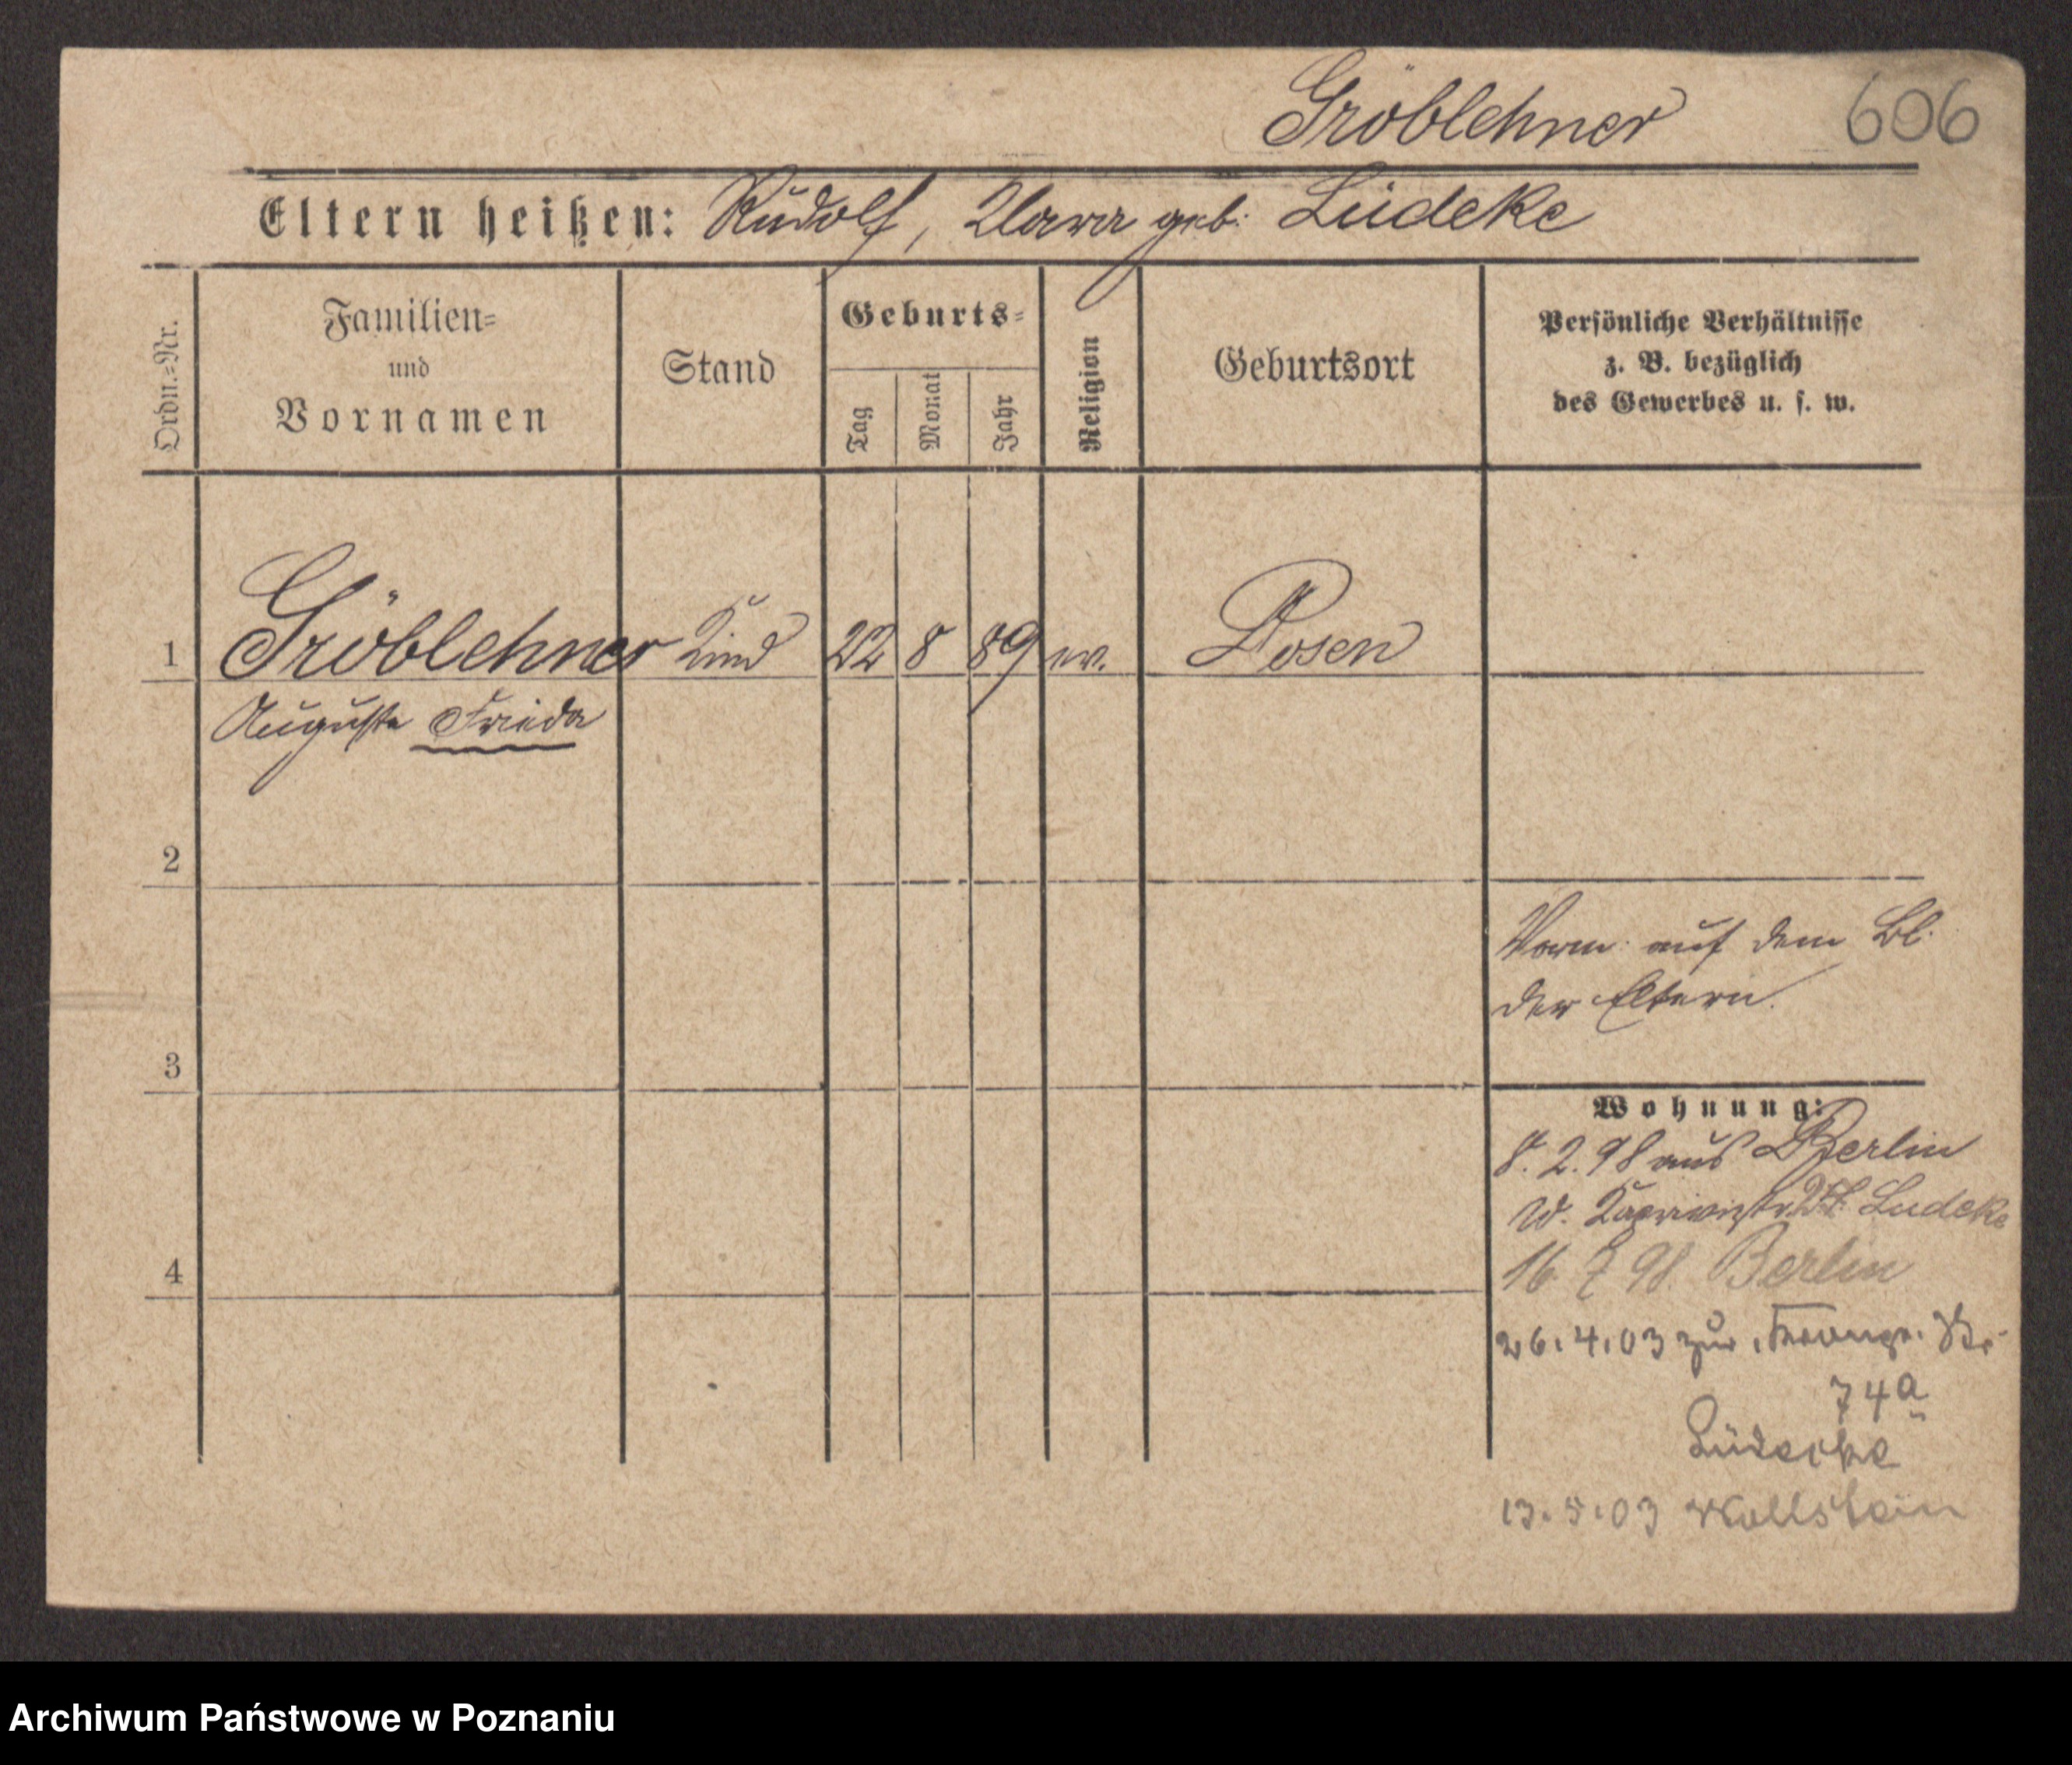 Gröblehner 606
Eltern heißen: Rudolf, Clara geb: Lüdeke
Ordn.=Nr.
Familien=
und
Vornamen
Stand
Geburts=
Tag
Monat
Jahr
Religion
Geburtsort
Persönliche Verhältnisse
z. B. bezüglich
des Gewerbes u. s. w.
1 Gröblehner Kind 22 8 89 ev. Posen
Auguste Frieda
2
Verm: auf dem Bl.
der Eltern.
3
Wohnung:
8. 2. 98 aus Berlin
W. Ludeke
4
16 7 98 Berlin
26.4.03 zur
74a
Lüdecke
13.5.03 Wollstein
Archiwum Państwowe w Poznaniu